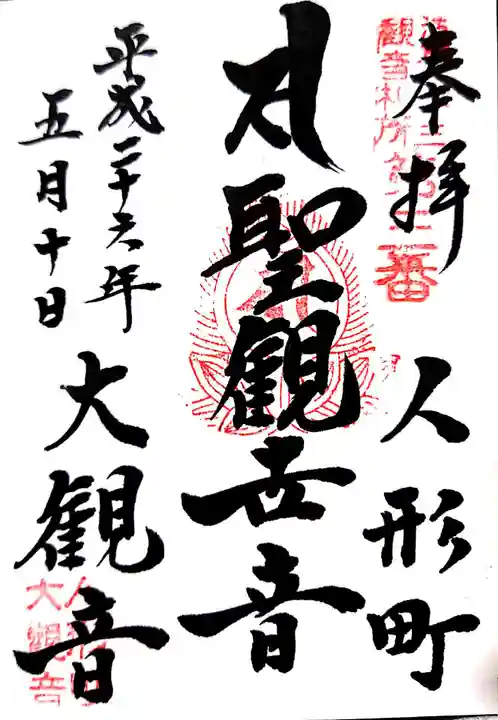 奉拝
人形町
聖観世音
平成二十六年
五月十日
大観音
観音札所第三番
大観音